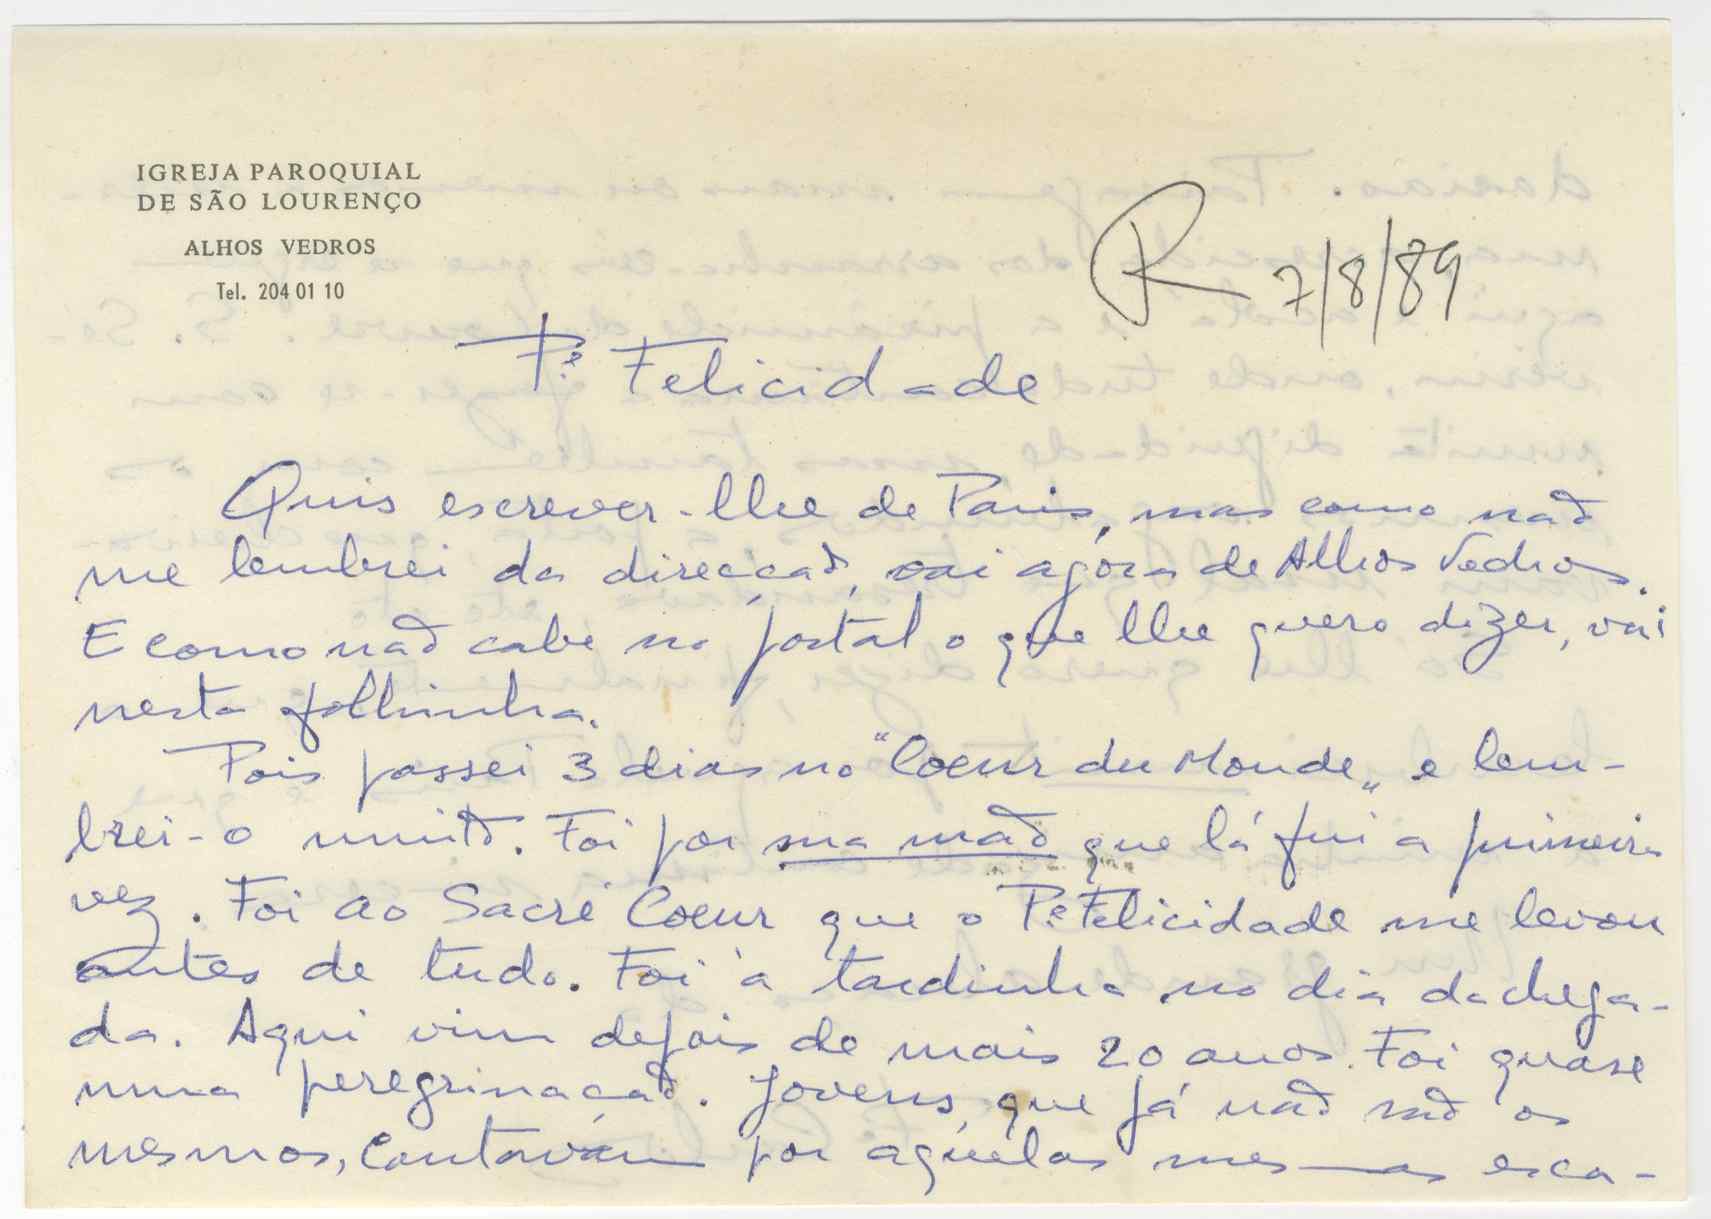 IGREJA PAROQUIAL
DE SÃO LOURENÇO
ALHOS VEDROS
Tel. 204 01 10
R 7/8/89
Pe. Felicidade
Quis escrever-lhe de Paris, mas como não
me lembrei da direcção, vai agora de Alhos Vedros.
E como não cabe no postal o que lhe quero dizer, vai
nesta folhinha.
Pois passei 3 dias no "Coeur du Monde" e lem-
brei-o muito. Foi por sua mão que lá fui a primeira
vez. Foi ao Sacré Coeur que o Pe. Felicidade me levou
antes de tudo. Foi à tardinha no dia da chega-
da. Aqui vim depois de mais 20 anos. Foi quase
uma peregrinação. Jovens, que já não são os
mesmos, cantavam por aquelas mesmas esca-